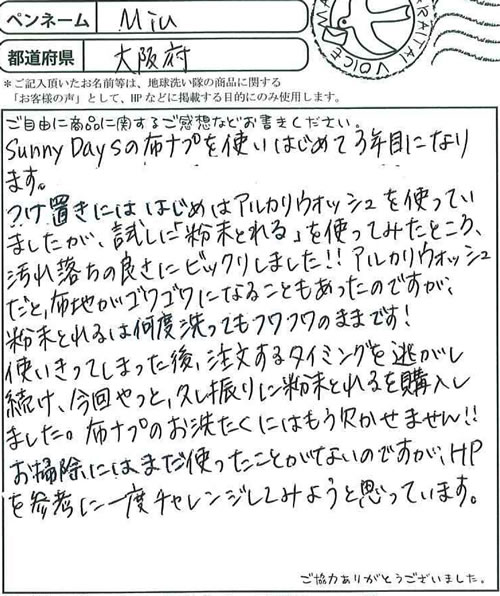 ペンネーム Miu
都道府県 大阪府
＊ご記入頂いたお名前等は、地球洗い隊の商品に関する
「お客様の声」として、HPなどに掲載する目的にのみ使用します。
ご自由に商品に関するご感想などお書きください。
Sunny Daysの布ナプを使いはじめて3年目になり
ます。
つけ置きには はじめはアルカリウォッシュを使ってい
ましたが、試しに「粉末とれる」を使ってみたところ、
汚れ落ちの良さにビックリしました!! アルカリウォッシュ
だと、布地がゴワゴワになることもあったのですが、
粉末とれるは何度洗ってもフワフワのままです!
使いきってしまった後、注文するタイミングを逃がし
続け、今回やっと、久し振りに粉末とれるを購入し
ました。布ナプのお洗たくにはもう欠かせません!!
お掃除にはまだ使ったことがないのですが、HP
を参考に一度チャレンジしてみようと思っています。
ご協力ありがとうございました。